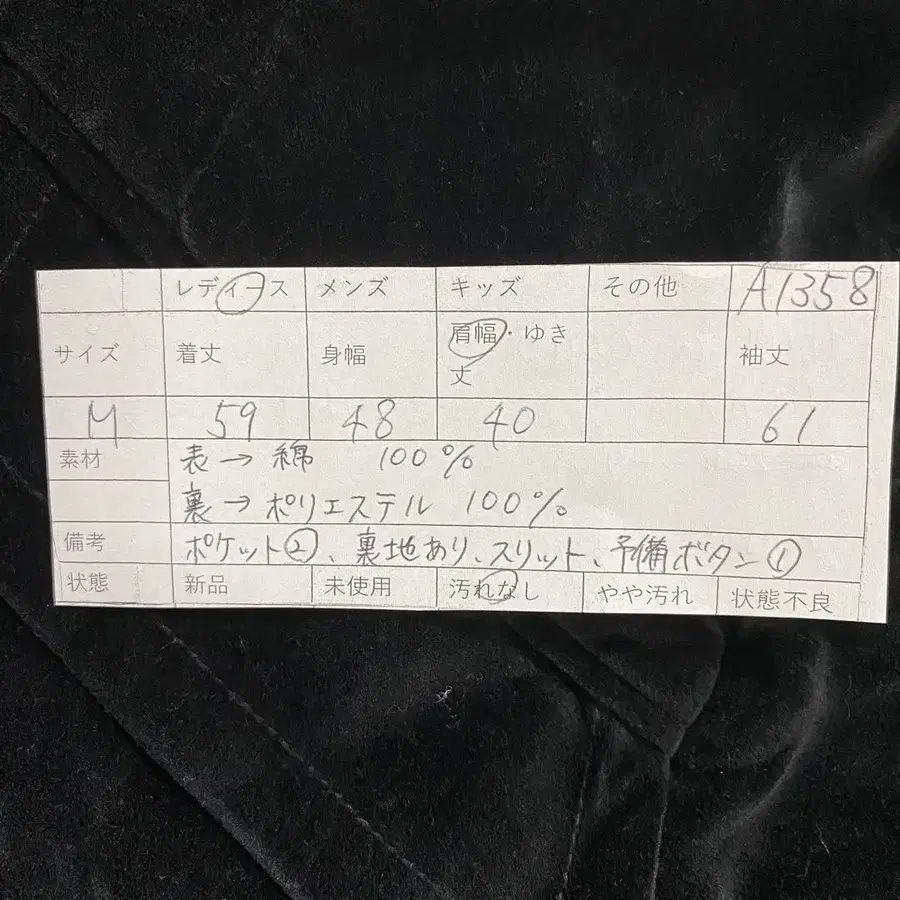 レディース メンズ キッズ その他 A1358
サイズ 着丈 身幅 肩幅・ゆき丈 袖丈
M 59 48 40 61
素材 表→綿 100%
裏→ポリエステル 100%
備考 ポケット②、裏地あり、スリット、予備ボタン①
状態 新品 未使用 汚れなし やや汚れ 状態不良